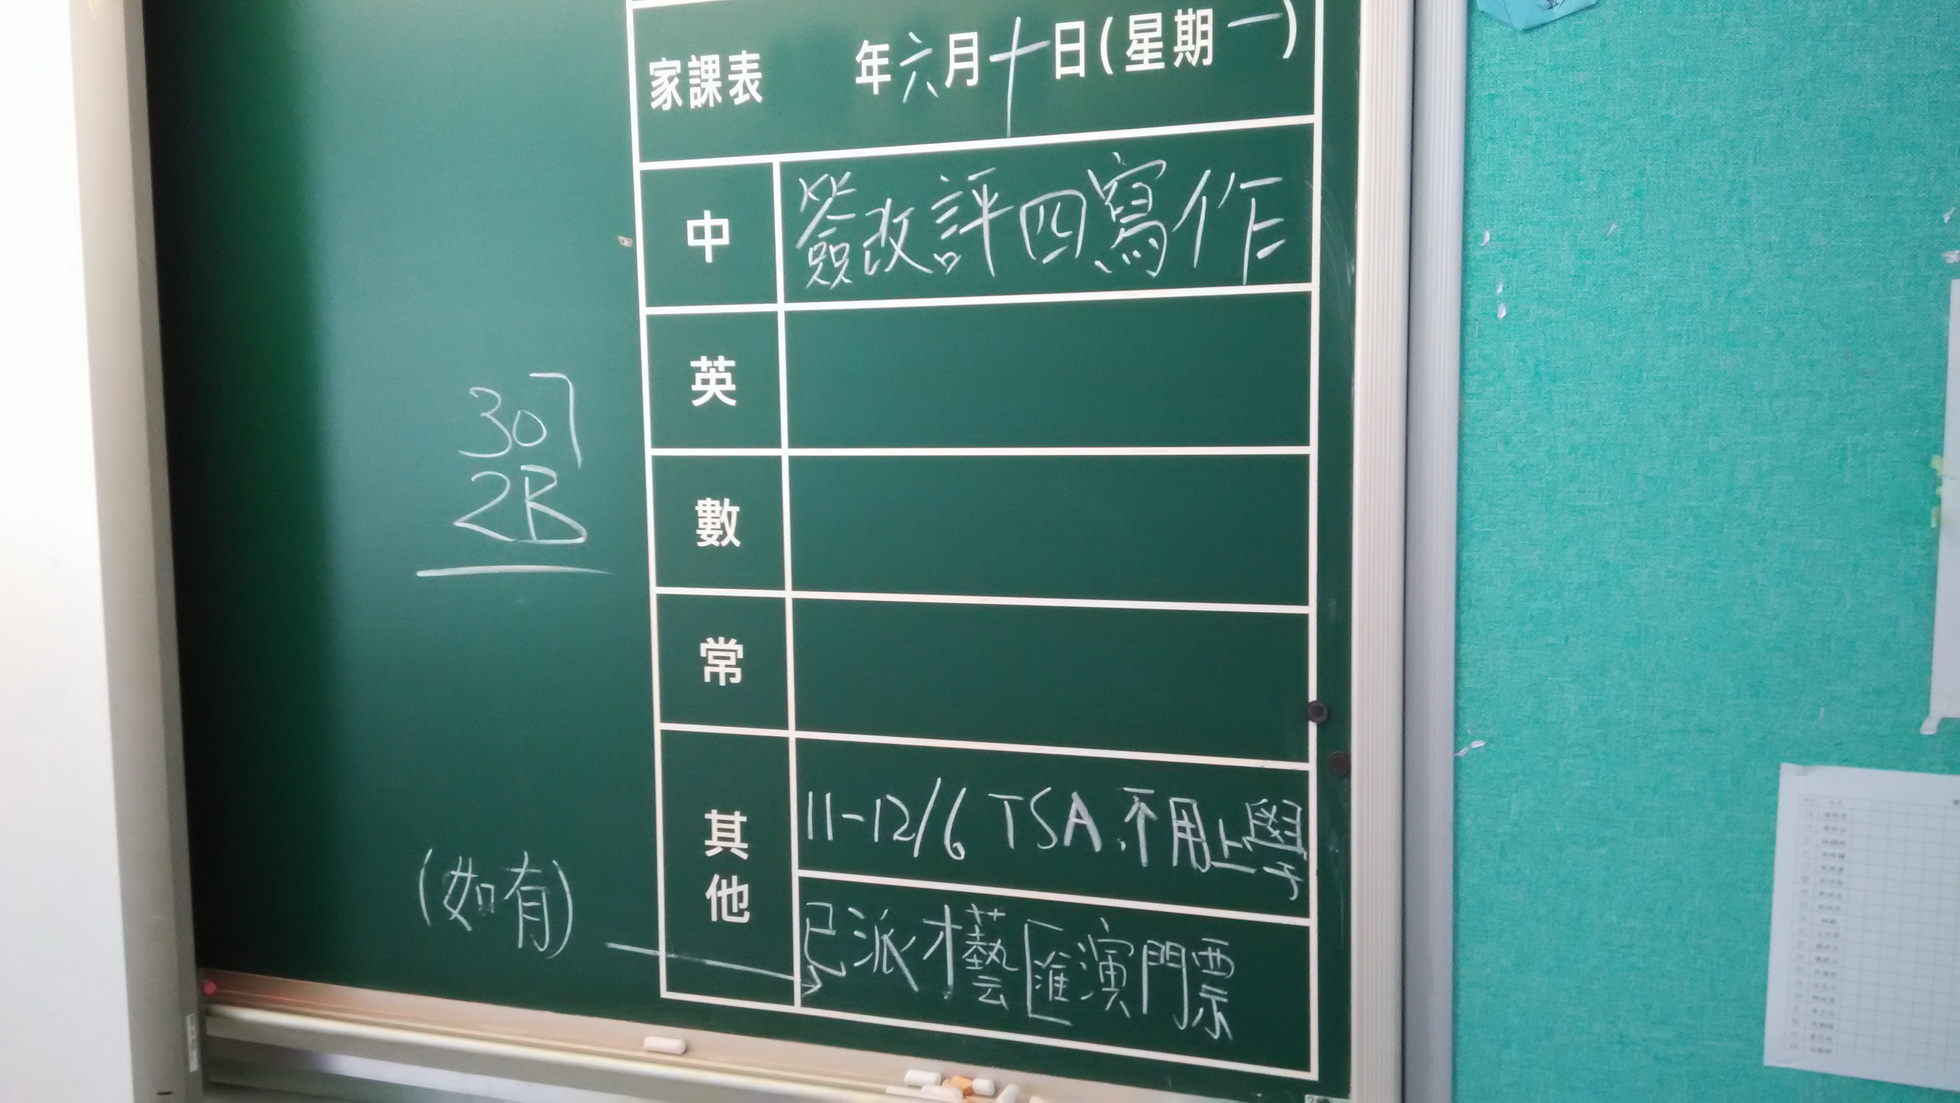 家課表 年六月十日(星期一)
中 簽改評四寫作
英
307
2B
數
常
其他 11-12/6 TSA,不用上學
(如有) 已派才藝匯演門票